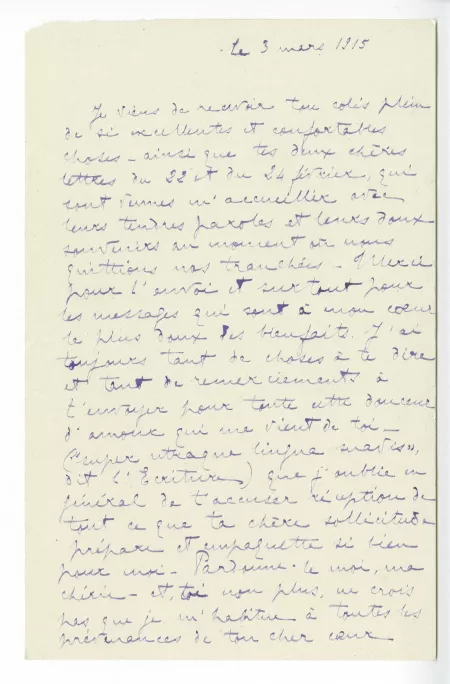 Le 3 mars 1915
Je viens de recevoir ton colis plein
de si excellentes et confortables
choses – ainsi que tes deux chères
lettres du 22 et du 24 février, qui
sont venues m'accueillir avec
leurs tendres paroles et leurs doux
souvenirs au moment où nous
quittions nos tranchées – Merci
pour l'envoi et surtout pour
les messages qui sont à mon cœur
le plus doux des bienfaits. J'ai
toujours tant de choses à te dire
et tant de remerciements à
t'envoyer pour toute cette douceur
d'amour qui me vient de toi –
("super utraque lingua suavis",
dit l'Ecriture) que j'oublie en
général de t'accuser réception de
tout ce que ta chère sollicitude
prépare et empaquette si bien
pour moi – Pardonne-le moi, ma
chérie – et, toi non plus, ne crois
pas que je m'habitue à toutes les
prévenances de ton cher cœur